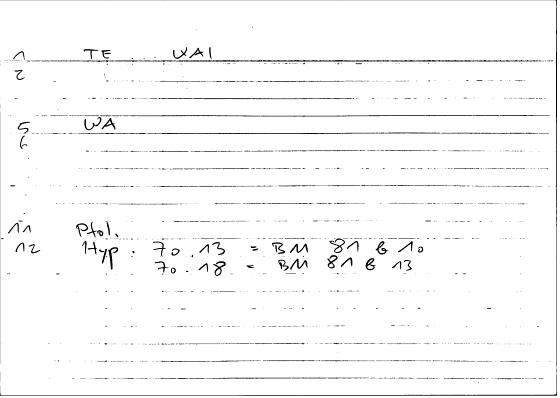 1 TE ... WAI
2
5 WA
6
11 Ptol.
12 Hyp. 70.13 = BM 81 b 10
70.18 = BM 81 b 13